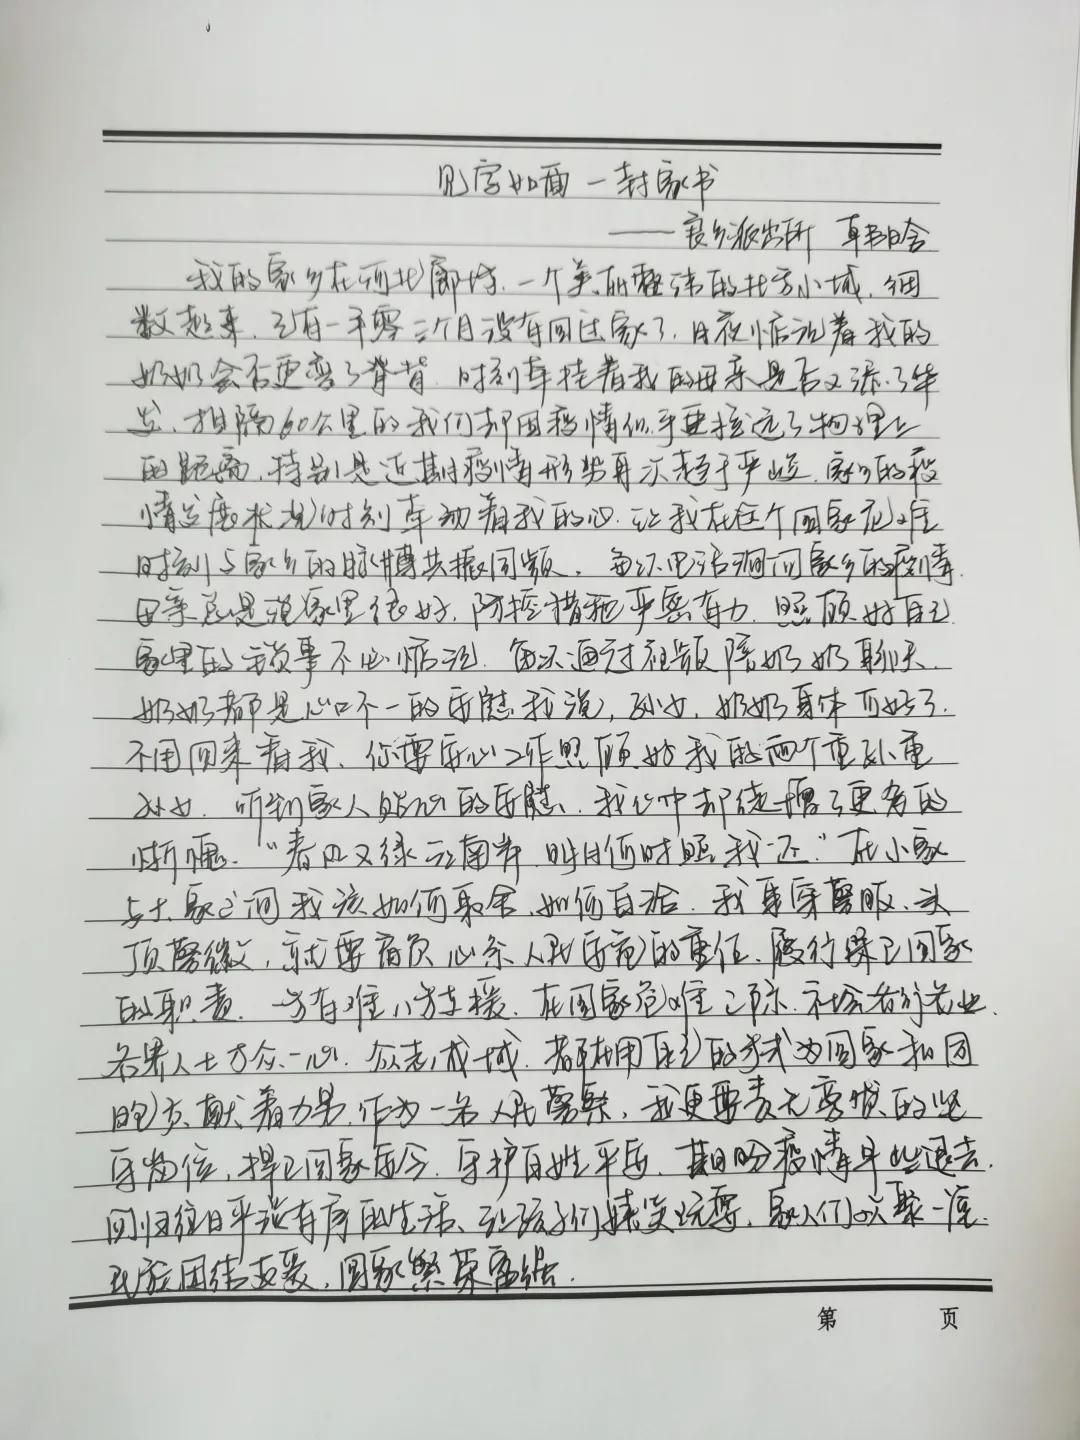 见字如面 一封家书
——良乡派出所 韩晗
我的家乡在河北廊坊，一个美丽整洁的北方小城，细
数起来，已有一年零三个月没有回过家了，日夜惦记着我的
奶奶会否更弯了脊背，时刻牵挂着我的母亲是否又添了华
发，相隔60公里的我们却因疫情似乎更拉远了物理上
的距离，特别是近期疫情形势再次趋于严峻，家乡的疫
情发展状况时刻牵动着我的心，让我在这个国家危难
时刻与家乡的脉搏共振同频。每次电话询问家乡的疫情，
母亲总是说家里很好，防控措施严密有力，照顾好自己，
家里的琐事不必惦记，每次通过视频陪奶奶聊天，
奶奶都是心口不一的安慰我说，孙女，奶奶身体可好了，
不用回来看我，你要安心工作照顾好我的两个重孙重
孙女，听到家人贴心的安慰，我心中却徒增了更多的
惭愧，“春风又绿江南岸，明月何时照我还”在小家
与大家之间我该如何取舍，如何自洽，我身穿警服，头
顶警徽，就要肩负心系人民安危的重任，履行保卫国家
的职责，一方有难八方支援，在国家危难之际，社会各行各业、
各界人士万众一心，众志成城，都在用自己的方式为国家和团
的贡献着力量，作为一名人民警察，我更要责无旁贷的坚
守岗位，捍卫国家安全，守护百姓平安，期盼疫情早些退去，
回归往日平淡有序的生活、让孩子们嬉笑玩耍，家人们欢聚一堂，
民族团结友爱，国家繁荣富强。
第 页